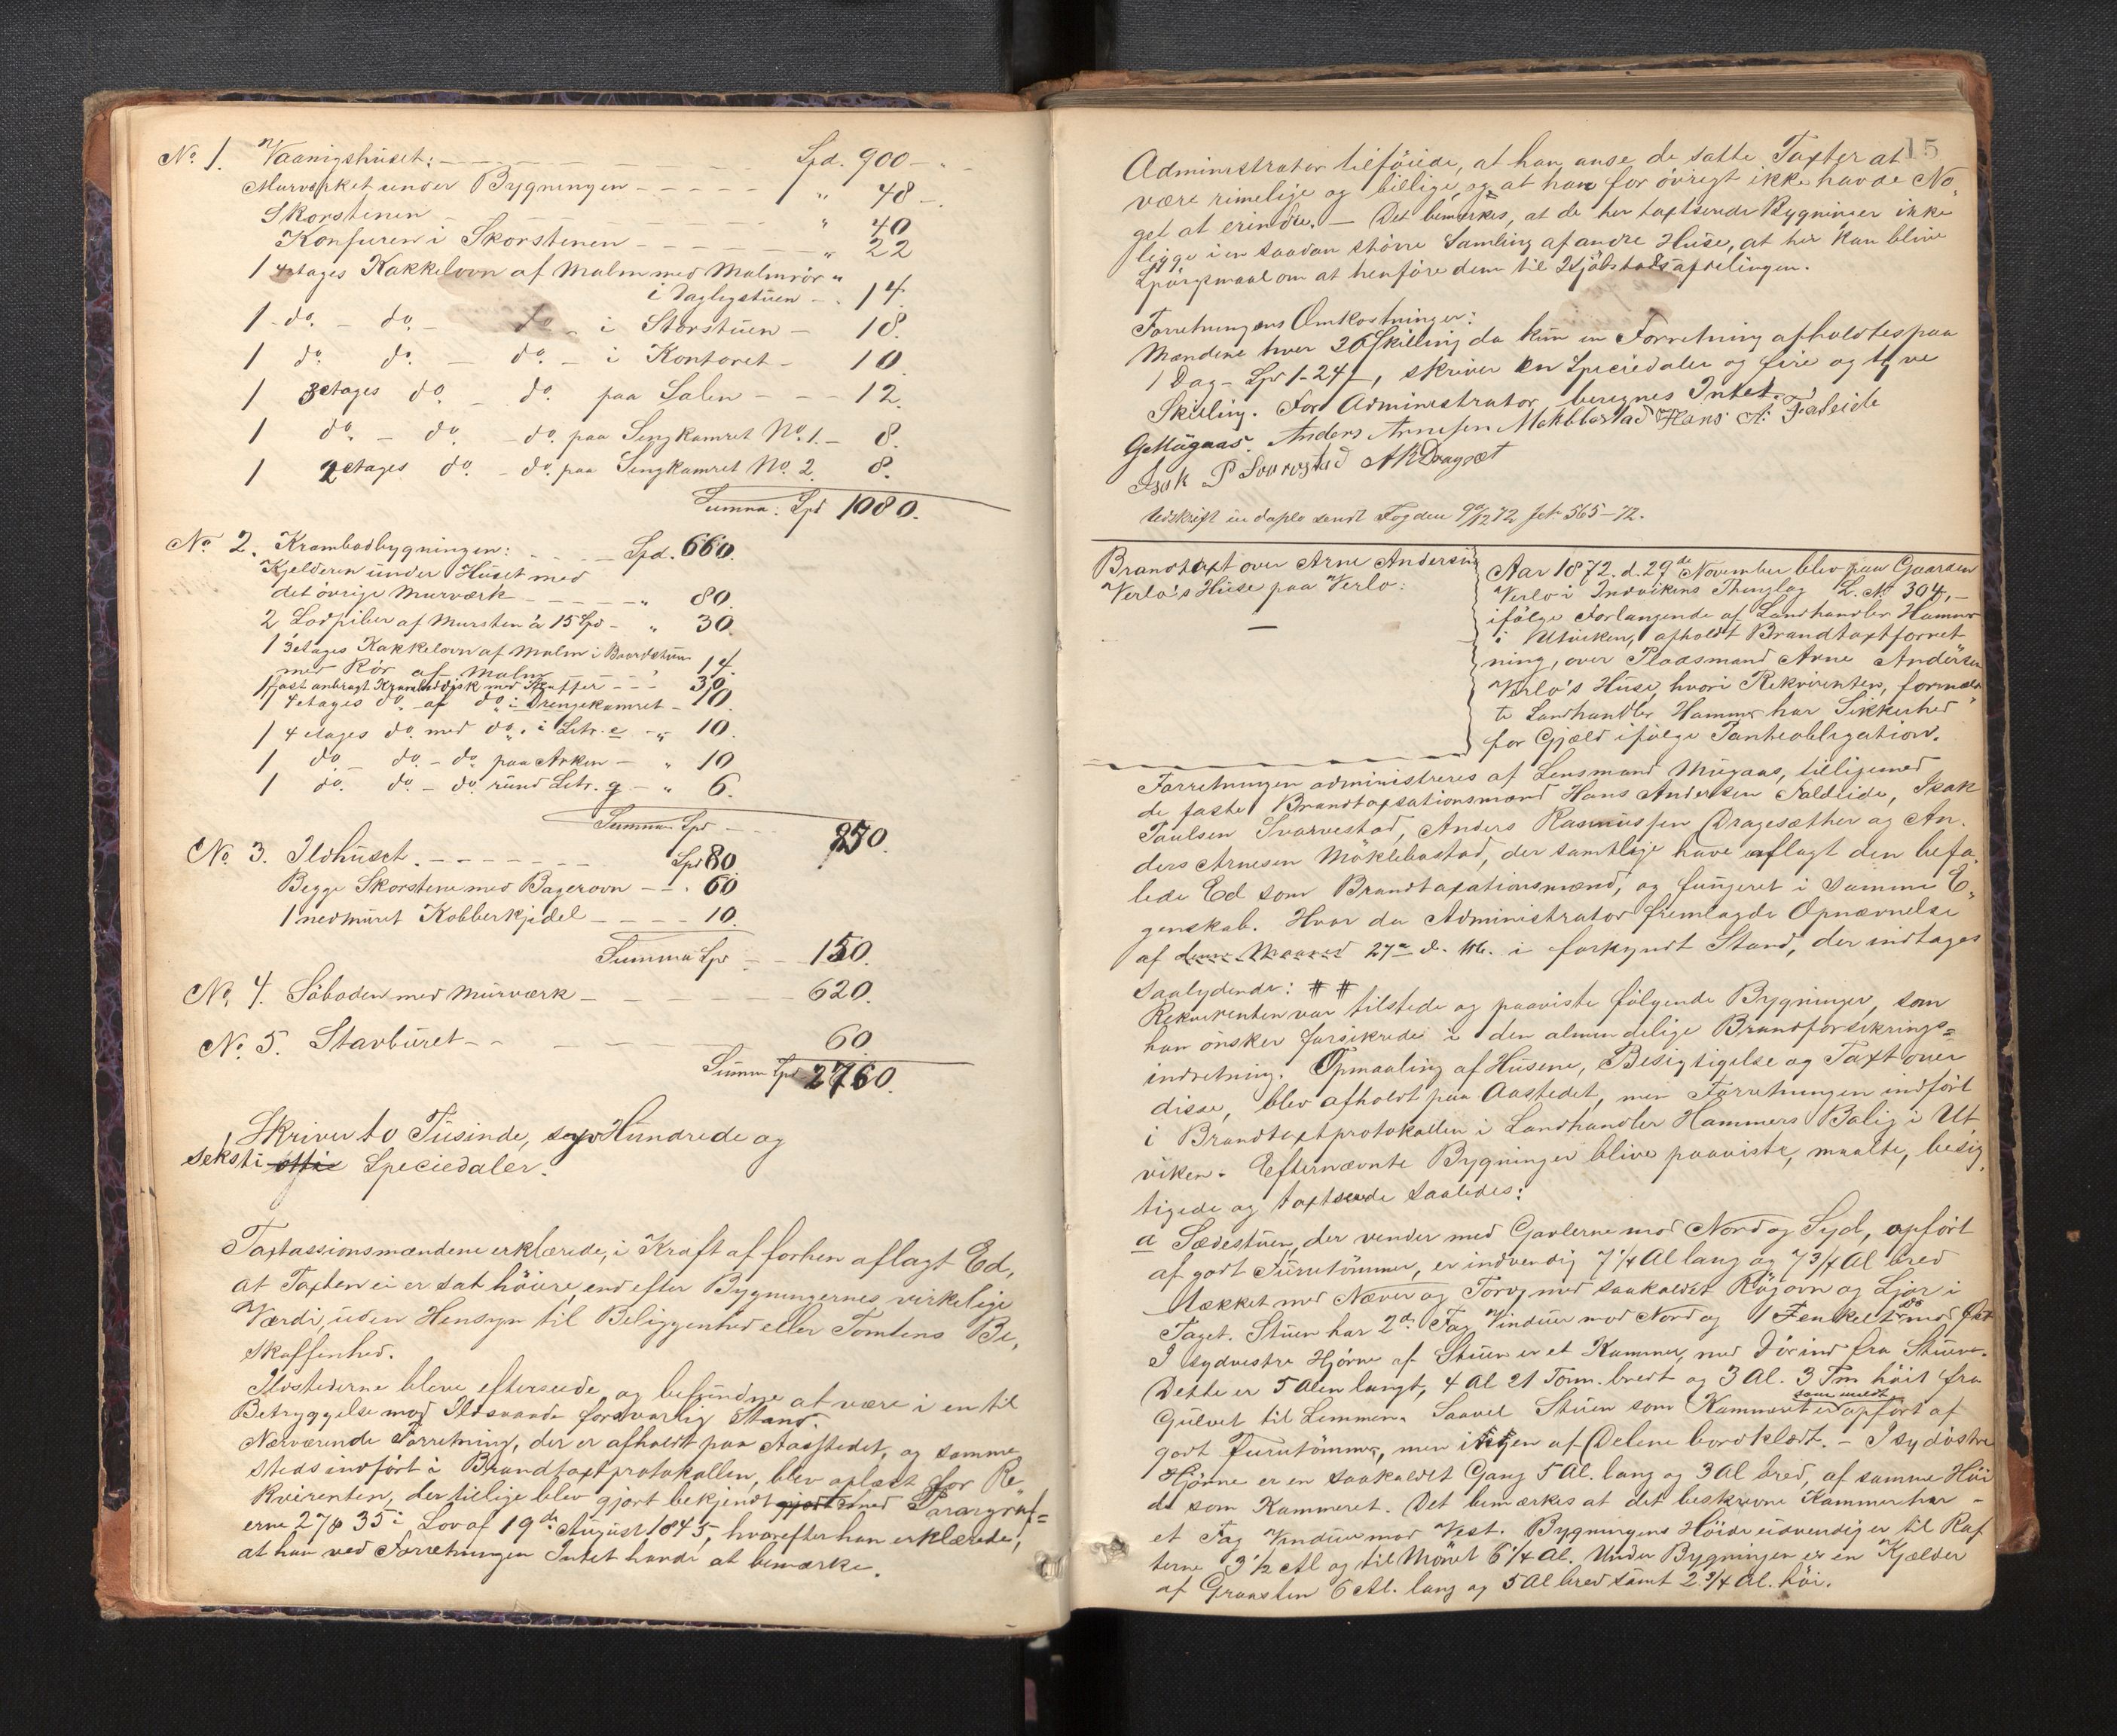 No. 1. Vaanigshuset: Spd. 900 -
Murværket under Bygningen - - - - - " 48 -
Skorstenen - " 40
Konfuren i Skorstenen - - - - " 22
1 4etages Kakkelovn af Malm med Malmrör "
i Daglegstuen - . 14.
1 - do. - do. - do. - i Storstuen - 18.
1 do. do. - do. - i Kontoret - 10.
1 3etages do. - do. paa Salen - - - 12.
1 do. - do. - do. paa Sengkamret No. 1. - 8.
1 2etages do. - do. paa Sengkamret No. 2. 8.
Summa: Spd 1080.
No. 2. Krambodbygningen: - - - - Spd. 660.
Kjelderen under Huset med
det övrige Murværk - - - - - - " 80.
2 Lodpiber af Mursten à 15 Spd - " 30.
1 3etages Kakkelovn af Malm i Boordstuen
med Rör af Malm 14.
1 fast anbragt Kramboddisk med Skuffer - - - 30.
1 4etages do. af do. i Drengekamret - 10.
1 4 etages do. med do. i Litr. e - " 10.
1 do. - do. - do. paa Arken - " 10
1 do. do. - do. rund Litr. g - " 6.
Summa Spd - 850.
No. 3. Ildhuset. - - - - - - - Spd 80
Begge Skorstene med Bagerovn - - . 60
1 nedmuret Kobberkjedel - - - - 10.
Summa Spd - - - 150.
No. 4. Söboden med Murværk - - - - - - - 620.
No. 5. Stavburet - - - - - 60.
Summa Spd 2760.
Skriver to Tusinde, syv Hundrede og
seksti otti Speciedaler.
Taxtassionsmændene erklærede, i Kraft af forhen aflagt Ed,
at Taxten ei er sat höiere, end efter Bygningernes virkelige
Værdi, uden Hensyn til Beliggenhed eller Tomtens Be,
skaffenhed.
Ildstederne bleve efterseede og befundne at være i en til
Betryggelse mod Ildsvaade forsvarlig Stand.
Nærværende Forretning, der er afholdt paa Aastedet, og samme
Steds indfört i Brandtaxtprotokollen, blev oplæst for Re,
kvirenten, der tillige blev gjort bekjendt gjort med Paragraf=
erne 27 & 35 i Lov af 19de August 1845, hvorefter han erklærede,
at han ved Forretningen Intet havde at bemærke.
15
Administrator tilföiede, at han anse de satte Taxter at
være rimelige og billige, og at han for övrigt ikke havde No,
get at erindre. - Det bemærkes, at de her taxtserede Bygninger ikke
ligge i en saadan större Samling af andre Huse, at her kan blive
Spörgsmaal om at henföre dem til Kjöbstadsafdelingen.
Forretningens Omkostninger:
Mændene hver 36 Skilling da kun en Forretning afholdtes paa
1 Dag - Spd 1 - 24 ẞ, skriver En Speciedaler og fire og tyve
Skilling. For Administrator beregnes Intet.
G Mügaas. Anders Arnesen Meklebostad Hans A. Faleide
Isak P Svarvestad A R Dragsæt
Udskrift in duplo sendt Fogden 9/12 72 Jot. 565 - 72.
Brandtaxt over Arne Andersen
Verlo's Huse paa Verlo:
Aar 1872. d. 29de November blev paa Gaarden
Verlo i Indvikens Thinglag L. No 304, -
ifölge Forlangende af Landhandler Hammer
i Utviken, afholdt Brandtaxtforret
ning, over Pladsmand Arne Andersen
Verlo's Huse, hvori Rekvirenten, formeld
te Landhandler Hammer har Sikkerhed
for Gjæld ifölge Panteobligation.
Forretningen administreres af Lensmand Mügaas, tilligemed
de faste Brandtaxsationsmænd Hans Andersen Faldeide, Isak
Paulsen Svarvestad, Anders Rasmussen Dragesæther og An.
ders Arnesen Möklebostad, der samtlige have aflagt den befa,
lede Ed som Brandtaxationsmænd, og fungeret i samme E,
genskab. Hvor da Administrator fremlagde Opnævnelse
af denne Maaned 27de d. M. i forkyndt Stand, der indtages
saalydende: # #
Rekvirenten var tilstede og paaviste fölgende Bygninger, som
han önsker forsikrede i den almindelige Brandforsikrings=
indretning. Opmaaling af Husene, Besigtigelse og Taxt over
disse, blev afholdt paa Aastedet, men Forretningen indfört
i Brandtaxtprotokollen i Landhandler Hammers Bolig i Ut
viken. Efternævnte Bygninger blive paaviste, maalte, besig,
tigede og taxtserede saaledes:
a Sædestuen, der vender med Gavlerne mod Nord og Syd, opfört
af godt Furutömmer, er indvendig 7 1/4 Al lang og 7 3/4 Al bred
tækket med Næver og Torv, med saakaldet Rögovn og Ljor i
Taget. Stuen har 2de Fag Vinduer mod Nord og 1 Fenkelt do mod Øst
I sydvestre Hjörne af Stuen er et Kammer, med Dör ind fra Stuen.
Dette er 5 Alen langt, 4 Al 21 Tom. bredt og 3 Al. 3 Tm höit fra
Gulvet til Lemmen. Saavel Stuen som Kammeret er som meldt opfört af
godt Furutömmer, men ingen af Delene bordklædt. - I sydöstre
Hjörne er en saakaldet Gang 5 Al. lang og 3 Al bred, af samme Höi
de som Kammeret. Det bemærkes at det beskrevne Kammer har -
et Fag Vinduer mod Vest. Bygningens Höide udvendig er til Raf
terne 3 1/2 Al og til Mönet 6 1/4 Al. Under Bygningen er en Kjælder
af Graasten 6 Al. lang og 5 Al bred samt 2 3/4 Al. höi.